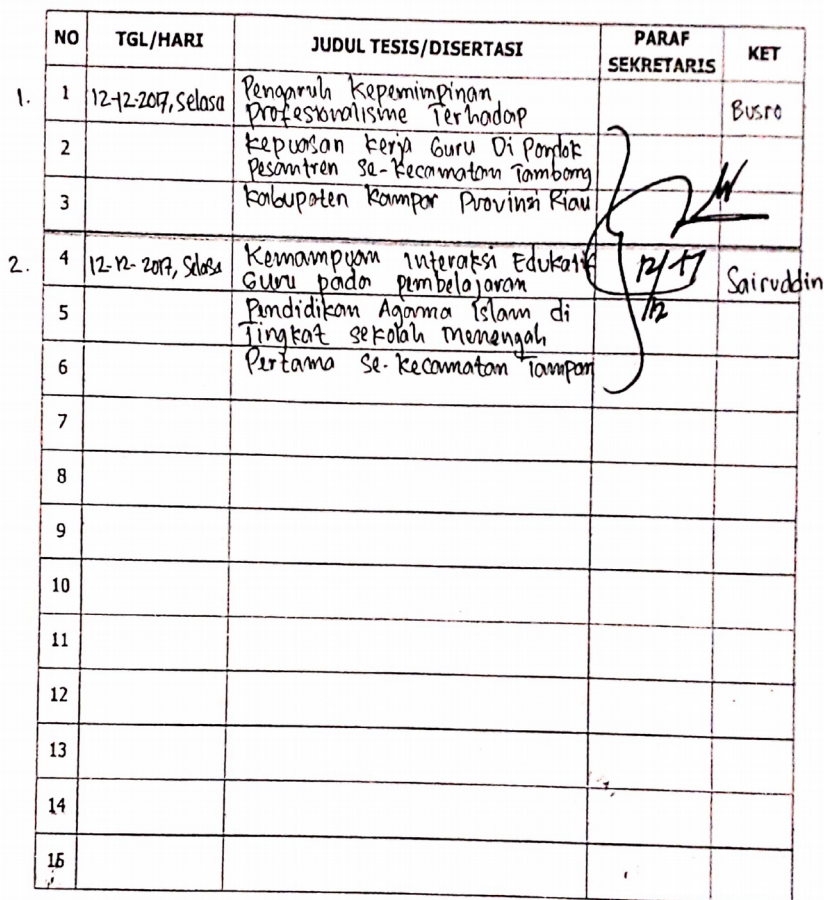 NO TGL/HARI JUDUL TESIS/DISERTASI PARAF SEKRETARIS KET
1. 1 12-12-2017, Selasa Pengaruh Kepemimpinan
Profesionalisme Terhadap Busro
2 Kepuasan Kerja Guru Di Pondok
Pesantren Se-Kecamatan Tambang
3 Kabupaten Kampar Provinsi Riau
2. 4 12-12-2017, Selasa Kemampuan Interaksi Edukatif
Guru pada pembelajaran 12/12 17 Sairuddin
5 Pendidikan Agama Islam di
Tingkat sekolah menengah
6 Pertama Se-Kecamatan Tampan
7
8
9
10
11
12
13
14
15